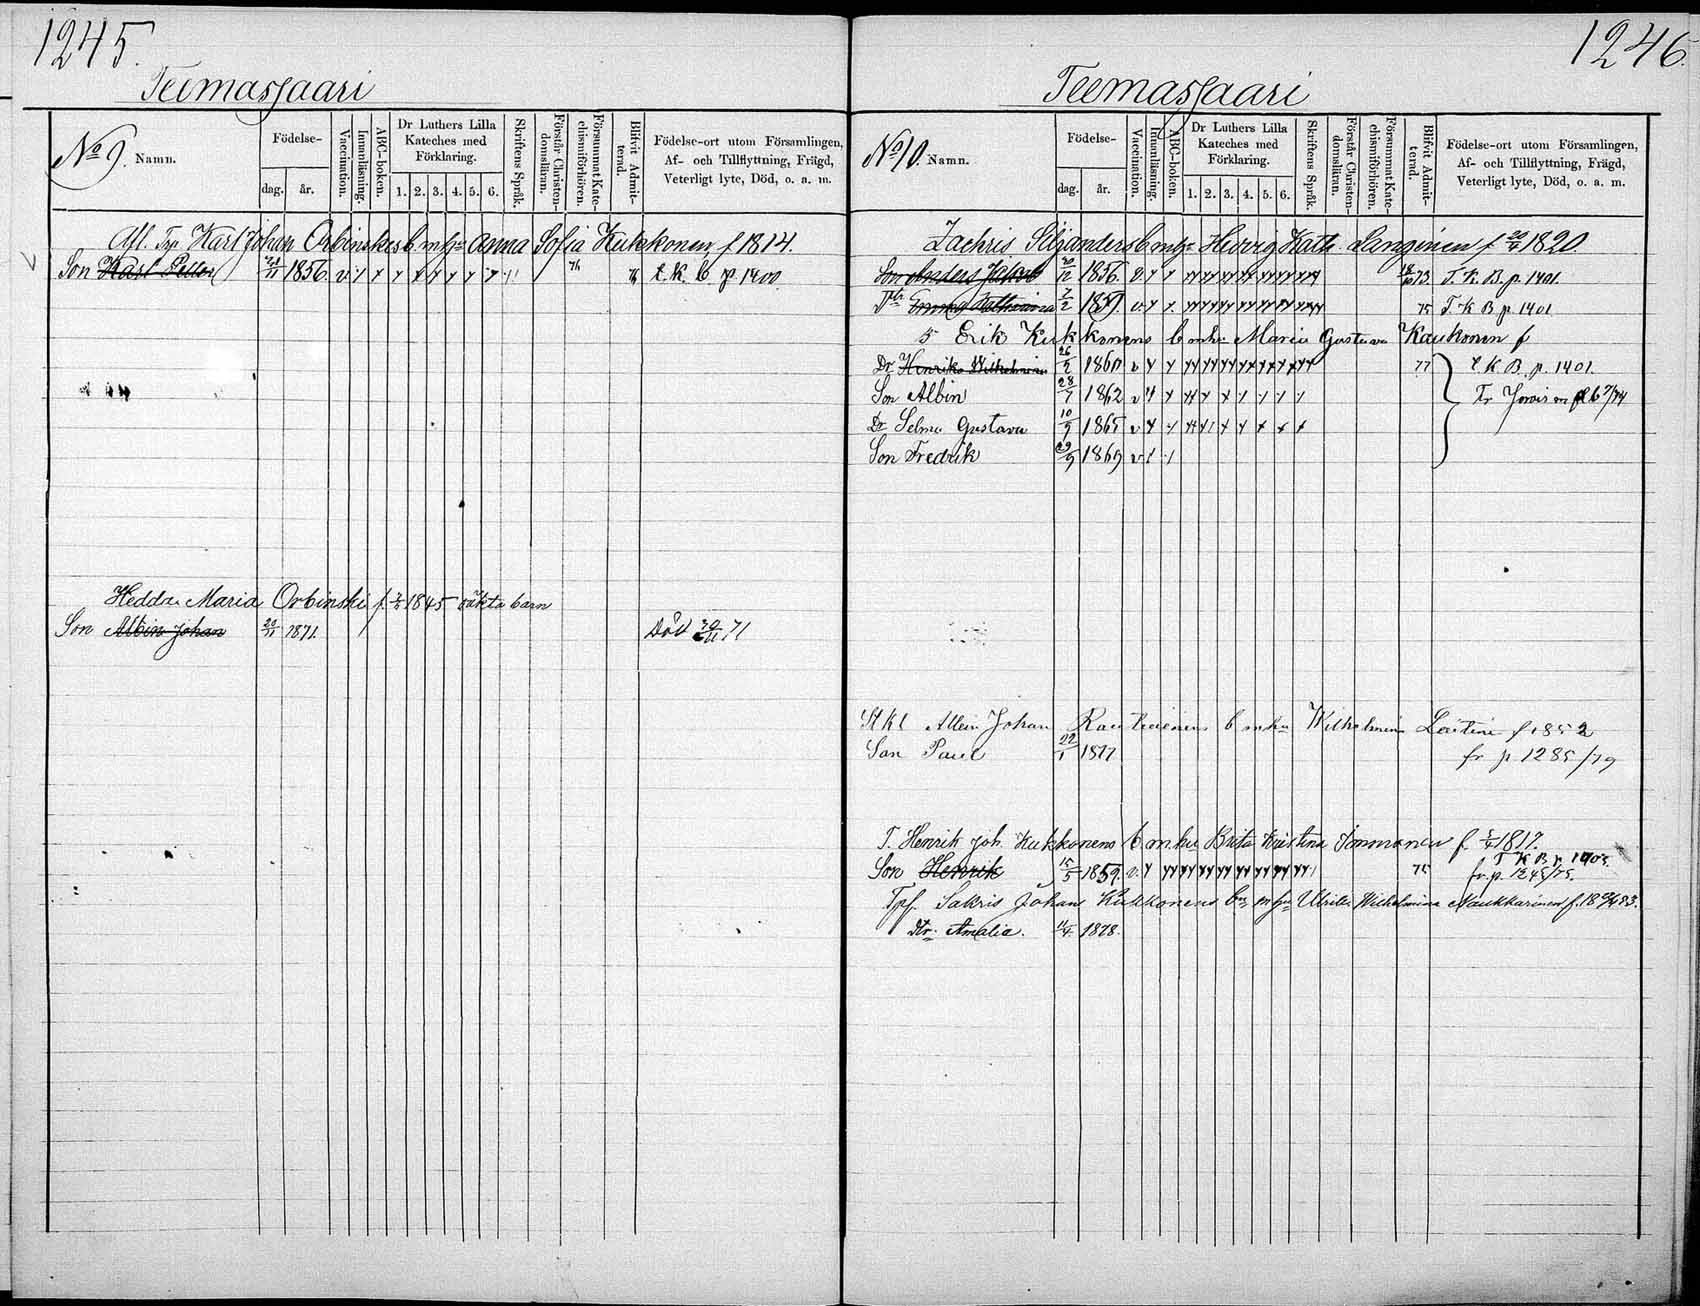 1245.
Teemassaari
No 9. Namn.
Födelse-
dag. år.
Vaccination.
Innanläsning.
ABC-boken.
Dr Luthers Lilla Kateches med Förklaring.
1. 2. 3. 4. 5. 6.
Skriftens Språk.
Förstår Christen-domsläran.
Försummat Kate-chismiförhören.
Blifvit Admit-terad.
Födelse-ort utom Församlingen,
Af- och Tillflyttning, Frägd,
Veterligt lyte, Död, o. a. m.
Afl. Trp Karl Johan Orbinskes b. m. h. Anna Sofia Kukkonen, f 1814.
Son Karl Petter 1856. v. 76 t. K. B. p. 1400.
Hedda Maria Orbinski f. 1845 oäkta barn
Son Albin Johan 20/11 1871. Död 30/11 71
1246.
Teemassaari
No 10. Namn.
Födelse-
dag. år.
Vaccination.
Innanläsning.
ABC-boken.
Dr Luthers Lilla Kateches med Förklaring.
1. 2. 3. 4. 5. 6.
Skriftens Språk.
Förstår Christen-domsläran.
Försummat Kate-chismiförhören.
Blifvit Admit-terad.
Födelse-ort utom Församlingen,
Af- och Tillflyttning, Frägd,
Veterligt lyte, Död, o. a. m.
Zachris b m h Hedvig Kath. Langinen f 20/4 1820
Son Anders Jakob 1856. v. 73. T. K. B. p. 1401.
Dtr Emma Katharina 7/2 1859. v. 75 T. K B p. 1401
Erik Kukkonens b mh Maria Gustava Kaukonen f
Dr Henrika Wilhelmina 26/2 1860 v 77 t K B. p. 1401.
Son Albin 28/7 1862 v
Dr Selma Gustava 10/9 1865 v
Son Fredrik 29/9 1869 v
Johan b mh Wilhelmina f 1852
Son Paul 22/1 1877 fr p. 1285/79
T. Henrik Joh. Kukkonens b m. h. Brita Kristina Immonen f 1817.
T K B p. 1403.
Son Henrik 15/5 1859. v. 75 fr. p. 1245/75.
Sakris Johan Kukkonens b. m h Ulrika Wilhelmina Naukkarinen
Dtr. Amalia. 1878.